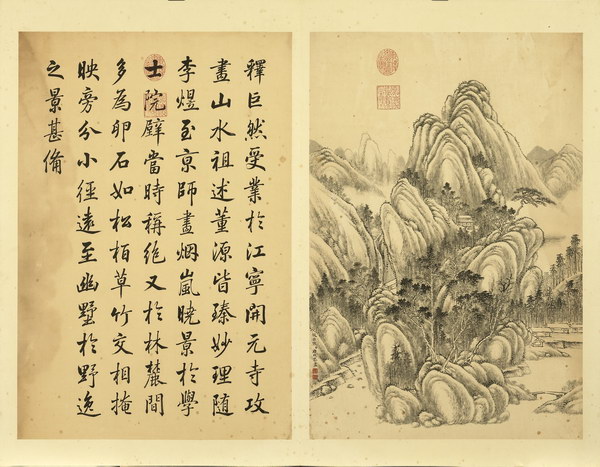 釋巨然受業於江寧開元寺攻
畫山水祖述董源皆臻妙理隨
李煜至京師畫烟嵐曉景於學
士院壁當時稱絶又於林麓間
多為卵石如松栢草竹交相掩
映旁分小徑遠至幽墅於野逸
之景甚備